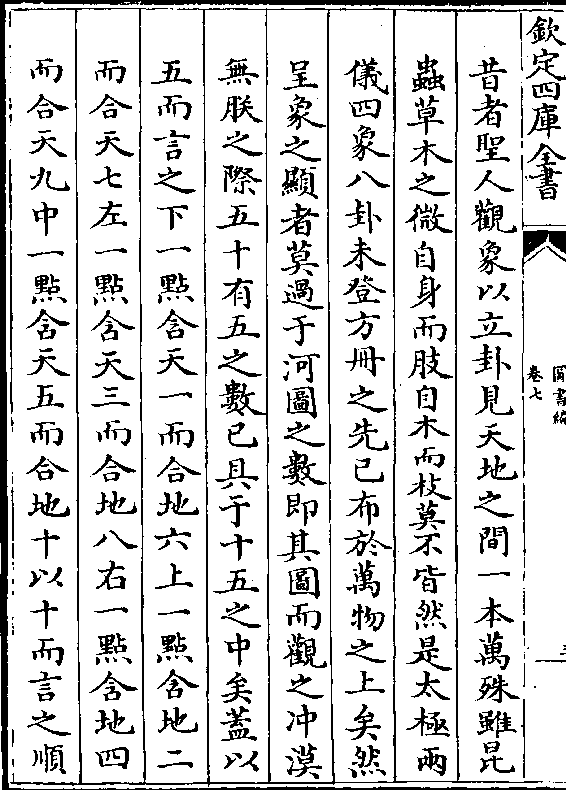 欽定四庫全書
圖書編
卷七
昔者聖人觀象以立卦見天地之間一本萬殊雖昆
蟲草木之微自身而肢自木而枝莫不皆然是太極兩
儀四象八卦未登方冊之先已布於萬物之上矣然
呈象之顯者莫過于河圖之數即其圖而觀之冲漠
無朕之際五十有五之數已具于十五之中矣葢以
五而言之下一點含天一而合地六上一點含地二
而合天七左一點含天三而合地八右一點含地四
而合天九中一點含天五而合地十以十而言之順